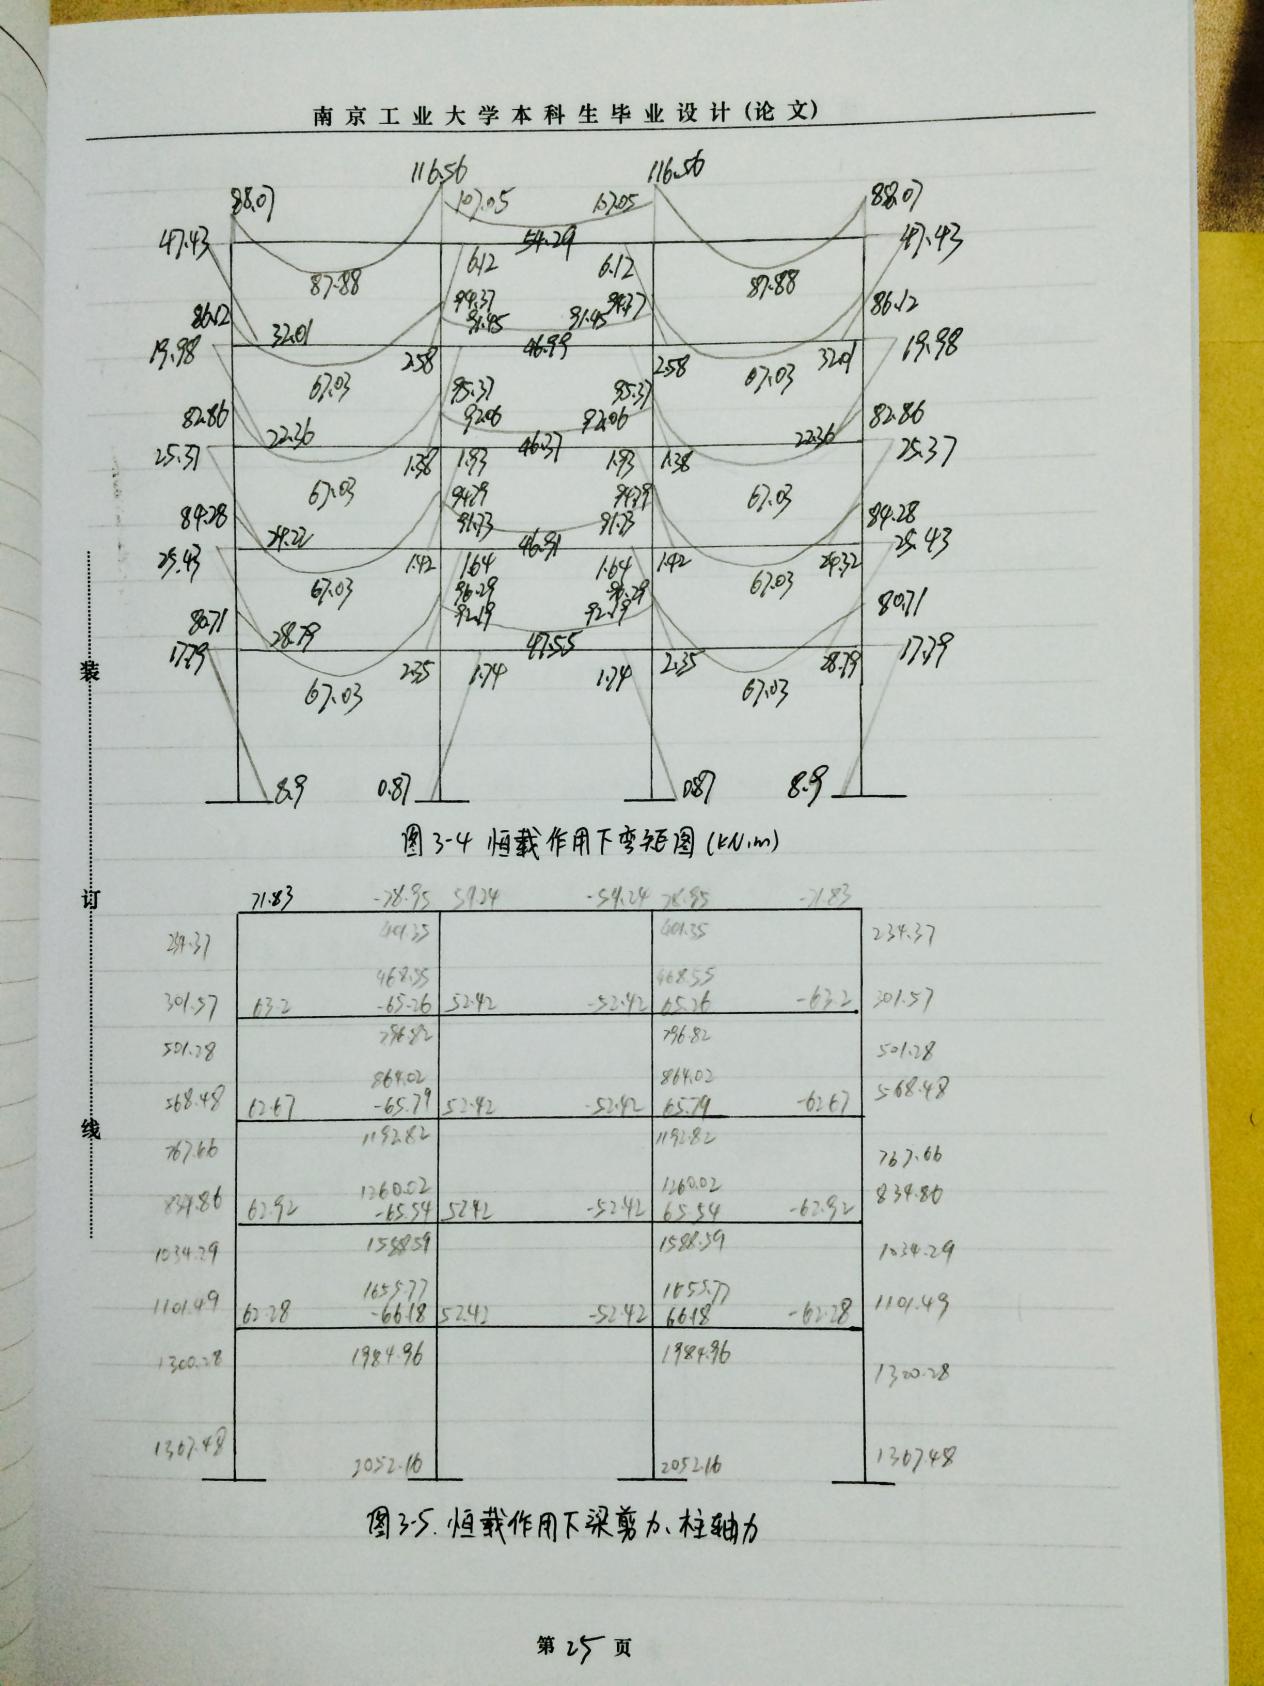 南京工业大学本科生毕业设计(论文)
116.56 116.56
88.07 107.05 107.05 88.07
47.43 54.29 47.43
87.88 6.12 6.12 87.88
86.12 94.37 94.37 86.12
32.01 91.45 91.45
19.98 2.58 46.99 2.58 32.01 19.98
67.03 95.37 95.37 67.03
82.86 92.06 92.06 82.86
22.36 46.37 22.36
25.37 1.38 1.93 1.93 1.38 25.37
67.03 94.79 94.79 67.03
84.28 91.73 91.73 84.28
24.22 46.91
25.43 1.42 1.64 1.64 1.42 24.32 25.43
67.03 96.29 96.29 67.03
80.71 92.19 92.19 80.71
28.79 47.55
17.79 2.35 1.74 1.74 2.35 28.79 17.79
67.03 67.03
8.9 0.87 0.87 8.9
图3-4 恒载作用下弯矩图(kN.m)
71.83 -78.95 59.24 -59.24 78.95 -71.83
234.37 401.35 401.35 234.37
468.55 468.55
301.57 63.2 -65.26 52.42 -52.42 65.26 -63.2 301.57
501.28 796.82 796.82 501.28
864.02 864.02
568.48 62.67 -65.79 52.42 -52.42 65.79 -62.67 568.48
767.66 1192.82 1192.82 767.66
1260.02 1260.02
834.86 62.92 -65.54 52.42 -52.42 65.54 -62.92 834.86
1034.29 1588.59 1588.59 1034.29
1655.77 1655.77
1101.49 62.28 -66.18 52.42 -52.42 66.18 -62.28 1101.49
1300.28 1984.96 1984.96 1300.28
1367.48 2052.16 2052.16 1367.48
图3-5.恒载作用下梁剪力、柱轴力
装
订
线
第25页